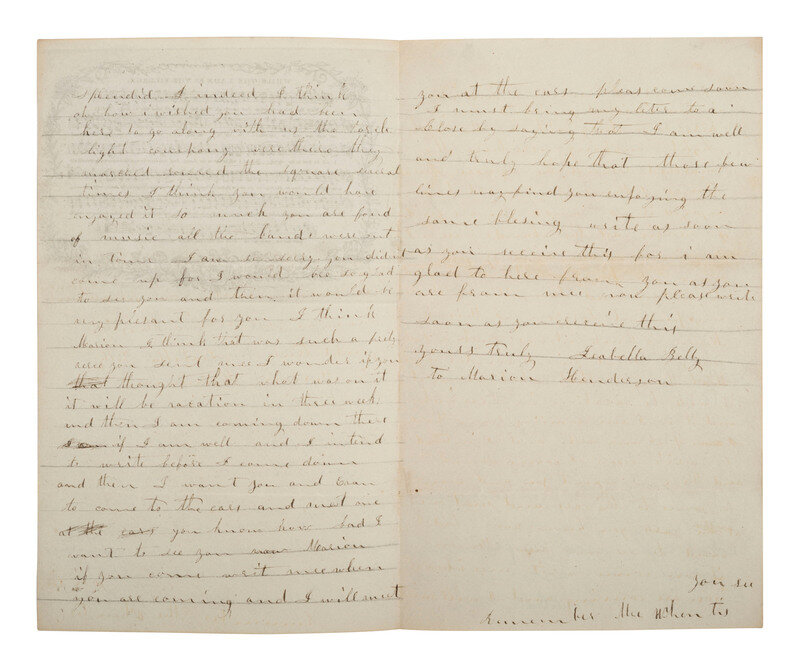 splendid I indeed I think
oh how i wished you had been
here to go along with us the torch
light company were there they
marched round the square several
times I think you would have
engazed it so much you are fond
of music all the bands were out
in time I am so sorry you didnt
come up for I would bee so glad
to see you and then it would be
very plesant for you I think
Marion I think that was such a prety
you sent mee I wonder if you
that thought that what was on it
it will be vacation in three week
and then I am coming down there
if I am well and I intend
to write before I come down
and then I want you and
to come to the cars and meet me
at the cars you know how bad I
want to see you now Marion
if you come writ mee when
you are coming and I will meet
you at the cars pleas come soon
I must bring my letter to a
close by saying that I am well
and truly hope that those few
lines may find you enjoying the
same blesing write as soon
as your receive this for i am
glad to here from you as you
are from mee now please write
soon as you receive this
yours truly Isabella Belly
to Marion Henderson
you see
Remember Me When tis